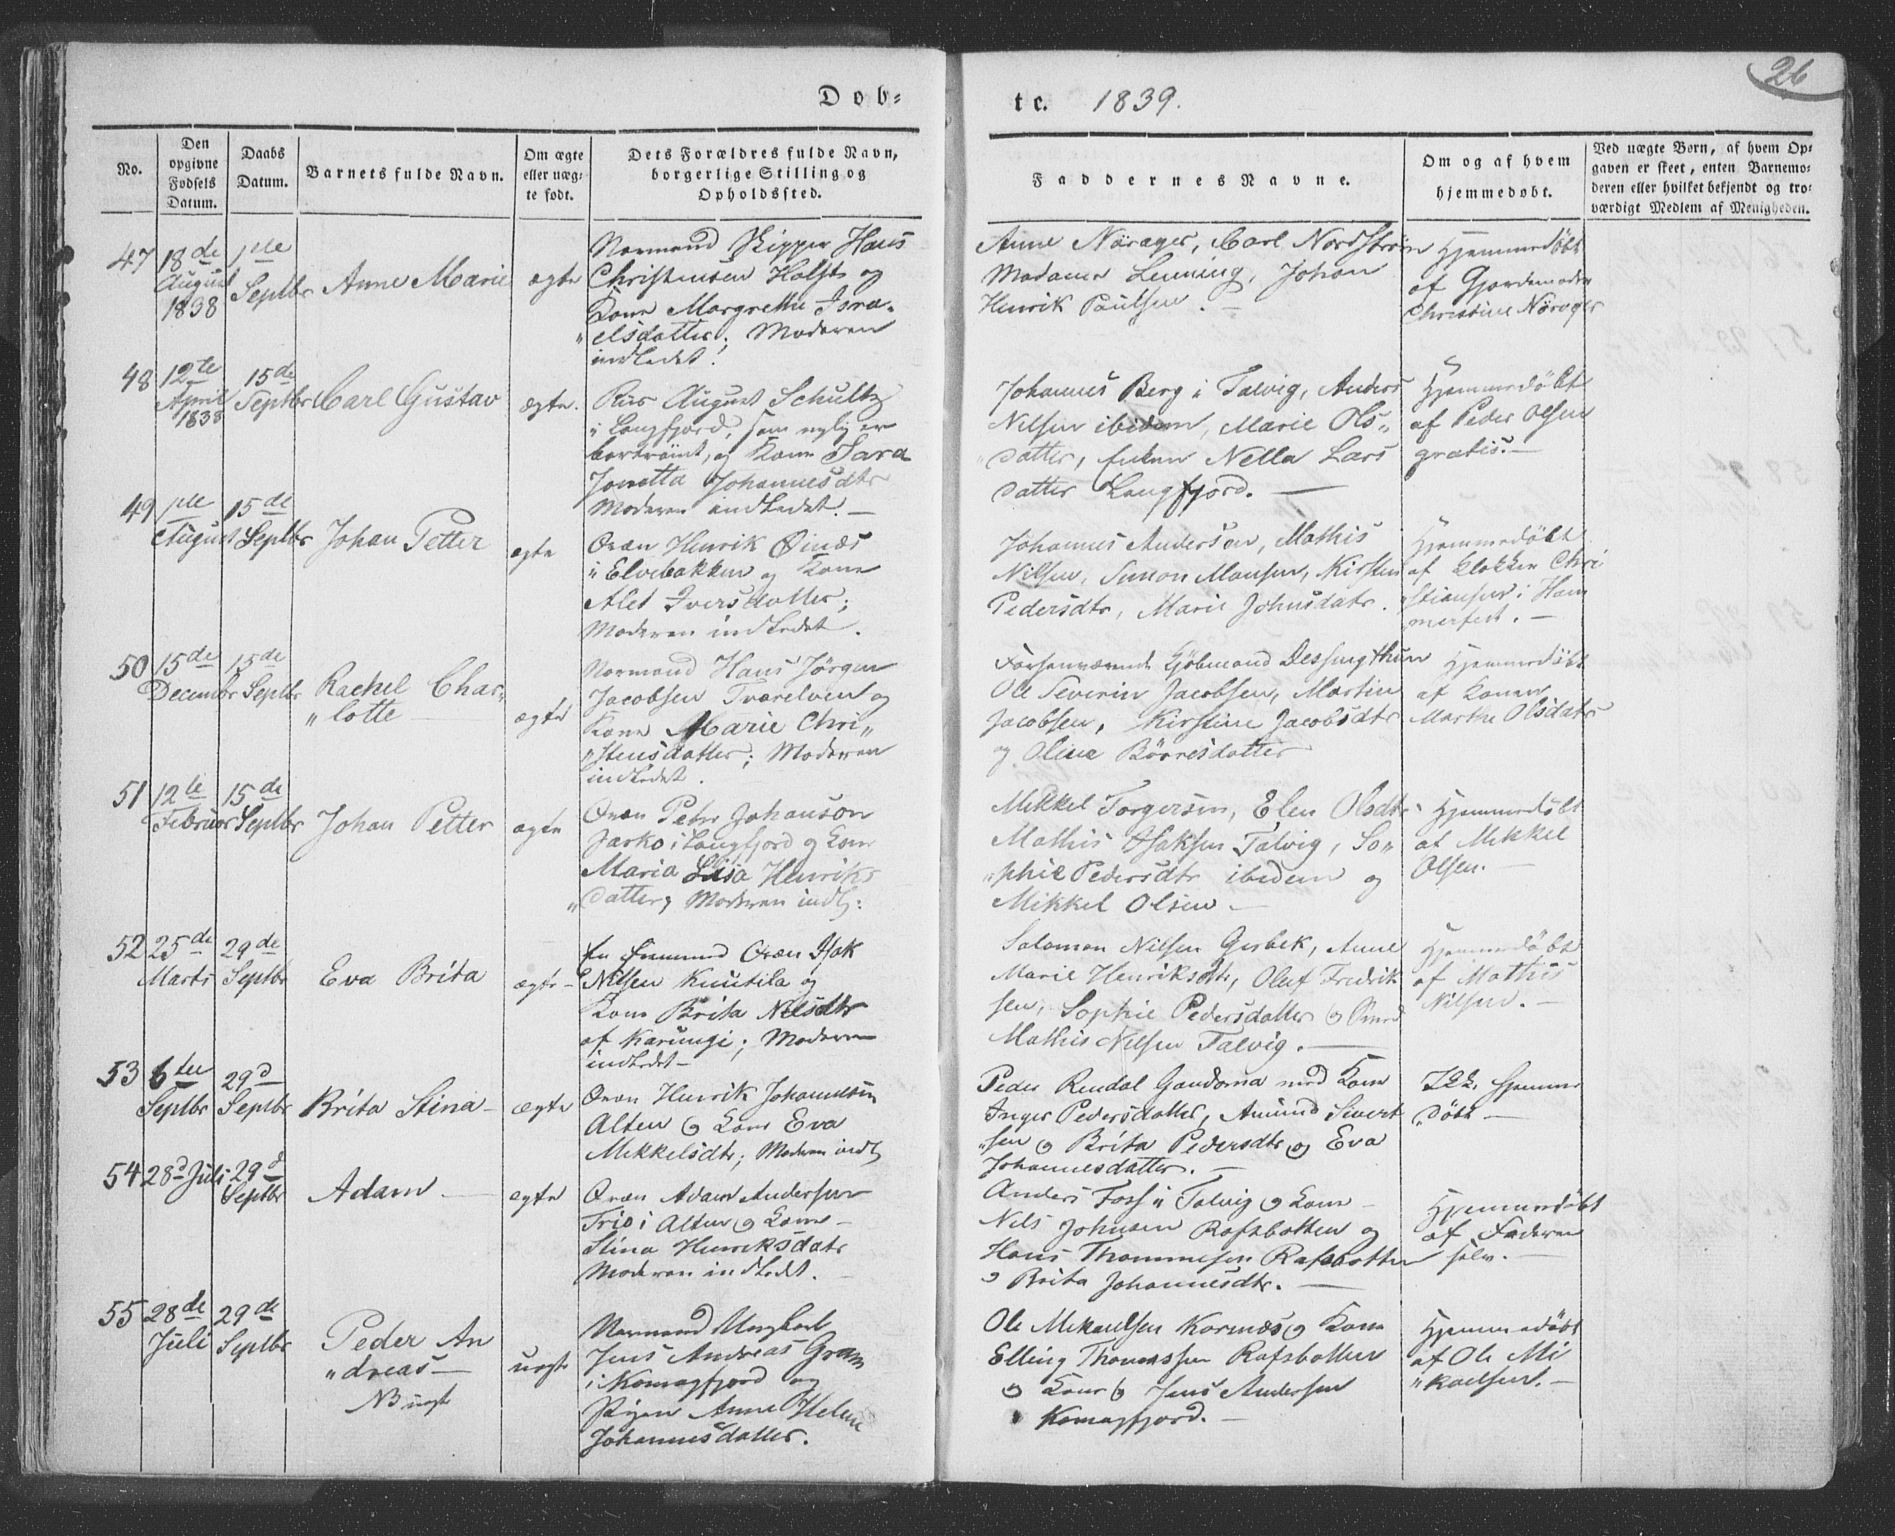 Dob-
te. 1839.
26
No.
Den
opgivne
Fødsels
Datum.
Daabs
Datum.
Barnets fulde Navn.
Om ægte
eller uæg-
te født.
Dets Forældres fulde Navn,
borgerlige Stilling og
Opholdssted.
Faddernes Navne.
Om og af hvem
hjemmedøbt.
Ved uægte Børn, af hvem Op-
gaven er skeet, enten Barnemo-
deren eller hvilket bekjendt og tro-
værdigt Medlem af Menigheden.
47
18de
August
1838
1ste
Septbr
Anne Marie
ægte
Normand Skipper Hans
Christensen Holst og
Kone Margrethe Isra-
elsdatter; Moderen
indledet!
Anne Nørager, Carl Nordstrøm
Madame Lenning, Johan
Henrik Paulsen. -
Hjemmedøbt
af Gjordemoder
Christine Nørager
48
12te
April
1838
15de
Septbr
Carl Gustav
ægte.
August Schultz
i Langfjord, som nylig er
bortrømt, og Kone Sara
Jonetta Johannesdtr
Moderen indledet. -
Johannes Berg i Talvig, Anders
Nilsen ibidem, Marie Ols-
datter, Enken Nella Lars
datter Langfjord. -
Hjemmedøbt
af Peder Olsen
gratis. -
49
1ste
August
15de
Septbr
Johan Petter
ægte
Qvæn Henrik Øinæs
i Elvebakken og Kone
Alet Iversdatter;
Moderen indledet.
Johannes Andersen, Mathis
Nilsen, Simon Monsen, Kirsten
Pedersdtr, Marie Johnsdatr.
Hjemmedøbt
af klokker Chri
stiansen i Ham
merfest. -
50
15de
Decembr
15de
Septbr
Rachel Char-
„lotte -
ægte
Normand Hans Jørgen
Jacobsen Tværelven og
Kone Marie Chri„
„stensdatter; Moderen
indledet.
Forhenværende Kjøbmand Dessingthun
Ole Severin Jacobsen, Martin
Jacobsen, Kirstine Jacobsdtr
og Oline Børresdatter
Hjemmedøbt
af Konen
Marthe Olsdatr
51
12te
Februar
15de
Septbr
Johan Petter
ægte
Qvæn Peter Johanson
Jarko i Langfjord og Kone
Maria Lisa Henriks
„datter; Moderen indl:
Mikkel Torgersen, Elen Olsdtr
Mathis Isaksen Talvig, So„
„phie Pedersdtr ibidem og
Mikkel Olsen -
Hjemmedøbt
af Mikkel
Olsen. -
52
25de
Marts
29de
Septbr
Eva Brita
ægte -
En fremmed Qvæn Isak
Nilsen Knutila og
Kone Brita Nilsdtr
af Karungi; Moderen
indledt -
Salomon Nilsen Gerbek, Anne
Marie Henriksdtr, Oluf Fredrik
sen, Sophie Pedersdatter og
Mathis Nilsen Talvig. -
Hjemmedøbt
af Mathis
Nilsen. -
53
6te
Septbr
29d
Septbr
Brita Stina -
ægte
Qvæn Henrik Johannesen
Alten og Kone Eva
Mikkelsdtr; Moderen indl
Peder Rendal Gandorna med Kone
Inger Pedersdatter, Amund Sivert
„sen og Brita Pedersdtr og Eva
Johannesdatter. -
Ikke hjemme
„døbt -
54
28d Juli
29d
Septbr
Adam -
ægte
Qvæn Adam Andersen
Trio i Alten og Kone -
Stina Henriksdatr
Moderen indledet. -
Anders Foss i Talvig og Kone -
Nils Johnsen Rafsbotten og
Hans Thommesen Rafsbotten
og Brita Johannesdtr. -
Hjemmedøbt
af Faderen
selv. -
55
28de
Juli
29de
Septbr
Peder An
„dreas -
NB uægte
uægte
Normand Ungkarl
Jens Andreas Gram
i Komagfjord og
Pigen Anne Helene
Johannesdatter.
Ole Mikaelsen Kornæs og Kone
Elling Thomassen Rafsbotten
og Kone og Jens Andersen
Komagfjord. -
Hjemmedøbt
af Ole Mi
„kaelsen. -